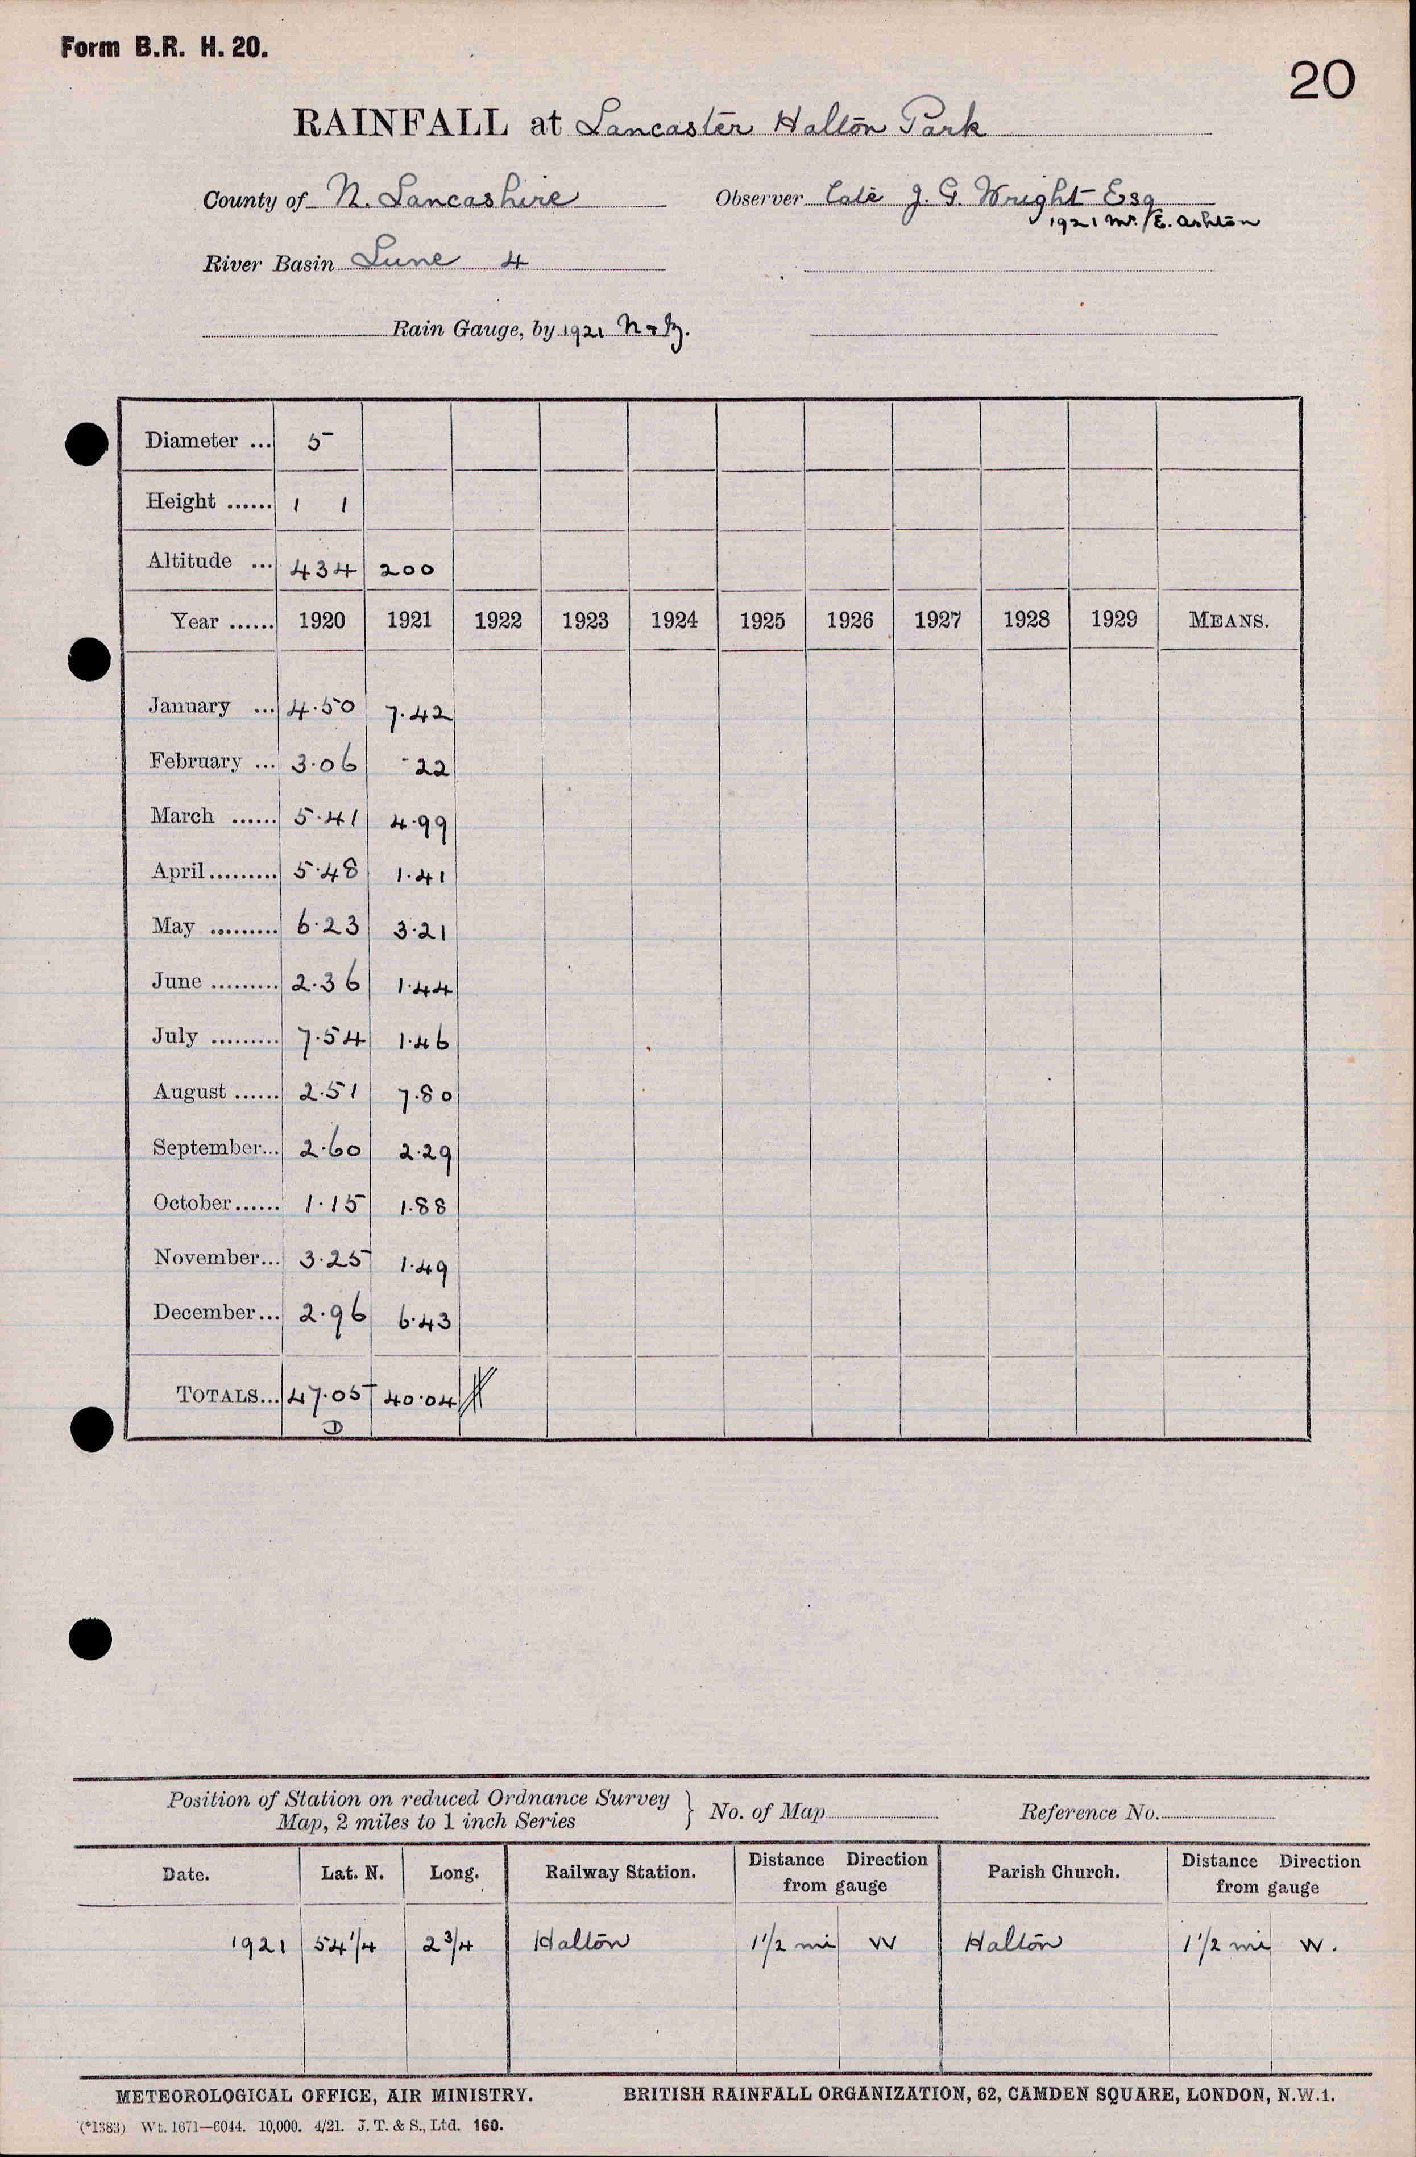 Form B.R. H. 20.
20
RAINFALL at Lancaster Halton Park
County of N. Lancashire Observer Late J. G. Wright Esq
1921 Mr. E. Ashton
River Basin Lune 4
Rain Gauge, by 1921 N & Z.
Diameter ... 5
Height ...... 1 1
Altitude ... 434 200
Year ...... 1920 1921 1922 1923 1924 1925 1926 1927 1928 1929 MEANS.
January ... 4.50 7.42
February ... 3.06 .22
March ...... 5.41 4.99
April ......... 5.48 1.41
May ......... 6.23 3.21
June ......... 2.36 1.44
July ......... 7.54 1.46
August ...... 2.51 7.80
September... 2.60 2.29
October ...... 1.15 1.88
November... 3.25 1.49
December... 2.96 6.43
TOTALS... 47.05 40.04
D
Position of Station on reduced Ordnance Survey
Map, 2 miles to 1 inch Series } No. of Map Reference No.
Date. Lat. N. Long. Railway Station. Distance Direction from gauge Parish Church. Distance Direction from gauge
1921 54 1/4 2 3/4 Halton 1 1/2 mi W Halton 1 1/2 mi W.
METEOROLOGICAL OFFICE, AIR MINISTRY. BRITISH RAINFALL ORGANIZATION, 62, CAMDEN SQUARE, LONDON, N.W.1.
(*1383) Wt. 1671—6044. 10,000. 4/21. J. T. & S., Ltd. 160.